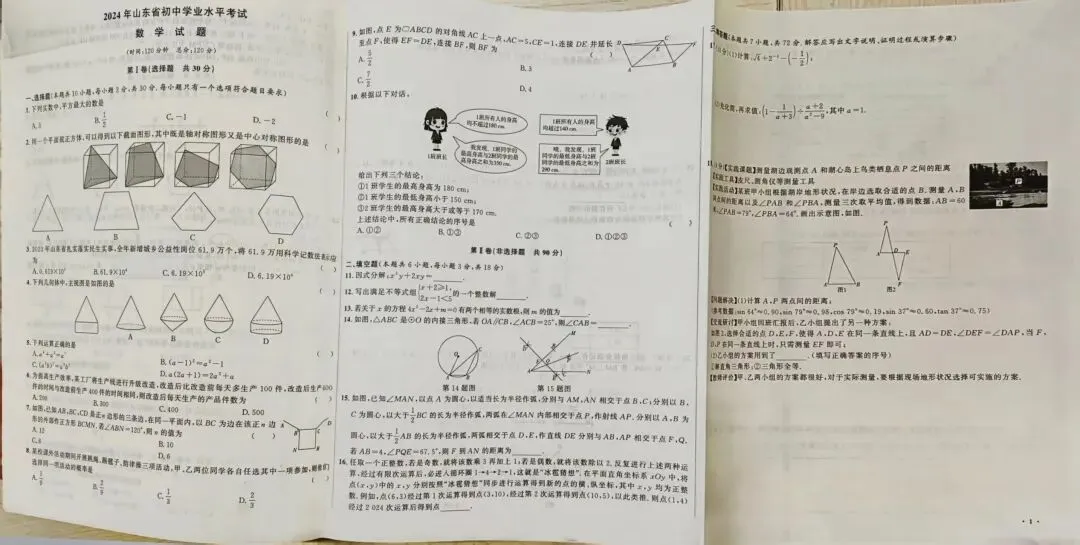 2024年山东省初中学业水平考试
数学试题
(时间:120分钟 总分:120分)
第Ⅰ卷(选择题 共30分)
一、选择题(本题共10小题,每小题3分,共30分.每小题只有一个选项符合题目要求)
1.下列实数中,平方最大的数是 ( )
A.3 B.1/2 C.-1 D.-2
2.用一个平面截正方体,可以得到以下截面图形,其中既是轴对称图形又是中心对称图形的是 ( )
A B C D
3.2023年山东省扎实落实民生实事,全年新增城乡公益性岗位61.9万个,将61.9万用科学记数法表示应
为 ( )
A.0.619×10⁵ B.61.9×10⁴ C.6.19×10⁵ D.6.19×10⁶
4.下列几何体中,主视图是如图的是 ( )
A B C D
5.下列运算正确的是 ( )
A.a⁴+a³=a⁷ B.(a-1)²=a²-1
C.(a³b)²=a³b² D.a(2a+1)=2a²+a
6.为提高生产效率,某工厂将生产线进行升级改造,改造后比改造前每天多生产100件,改造后生产600
件的时间与改造前生产400件的时间相同,则改造后每天生产的产品件数为 ( )
A.200 B.300 C.400 D.500
7.如图,已知AB,BC,CD是正n边形的三条边,在同一平面内,以BC为边在该正n边
形的外部作正方形BCMN.若∠ABN=120°,则n的值为 ( )
A.12 B.10
C.8 D.6
8.某校课外活动期间开展跳绳、踢毽子、韵律操三项活动,甲、乙两位同学各自任选其中一项参加,则他们
选择同一项活动的概率是 ( )
A.1/9 B.2/9 C.1/3 D.2/3
9.如图,点E为□ABCD的对角线AC上一点,AC=5,CE=1,连接DE并延长
至点F,使得EF=DE,连接BF,则BF为 ( )
A.5/2 B.3
C.7/2 D.4
10.根据以下对话,
1班所有人的身高
均不超过180 cm.
我发现,1班同学的
最高身高与2班同学的最
高身高之和为350 cm.
1班班长
2班所有人的身高
均超过140 cm.
哦,我发现,1班
同学的最低身高与2班
同学的最低身高之和为
290 cm.
2班班长
给出下列三个结论:
①1班学生的最高身高为180 cm;
②1班学生的最低身高小于150 cm;
③2班学生的最高身高大于或等于170 cm.
上述结论中,所有正确结论的序号是 ( )
A.①② B.①③ C.②③ D.①②③
第Ⅱ卷(非选择题 共90分)
二、填空题(本题共6小题,每小题3分,共18分)
11.因式分解:x²y+2xy=______.
12.写出满足不等式组{x+2≥1, 2x-1<5的一个整数解______.
13.若关于x的方程4x²-2x+m=0有两个相等的实数根,则m的值为______.
14.如图,△ABC是⊙O的内接三角形.若OA∥CB,∠ACB=25°,则∠CAB=______.
第14题图 第15题图
15.如图,已知∠MAN,以点A为圆心,以适当长为半径作弧,分别与AM,AN相交于点B,C;分别以B,
C为圆心,以大于1/2BC的长为半径作弧,两弧在∠MAN内部相交于点P,作射线AP.分别以A,B为
圆心,以大于1/2AB的长为半径作弧,两弧相交于点D,E,作直线DE分别与AB,AP相交于点F,Q.
若AB=4,∠PQE=67.5°,则F到AN的距离为______.
16.任取一个正整数,若是奇数,就将该数乘3再加上1;若是偶数,就将该数除以2.反复进行上述两种运
算,经过有限次运算后,必进入循环圈1→4→2→1,这就是“冰雹猜想”.在平面直角坐标系xOy中,将
点(x,y)中的x,y分别按照“冰雹猜想”同步进行运算得到新的点的横、纵坐标,其中x,y均为正整
数.例如,点(6,3)经过第1次运算得到点(3,10),经过第2次运算得到点(10,5),以此类推.则点(1,4)
经过2 024次运算后得到点______.
三、解答题(本题共7小题,共72分.解答应写出文字说明、证明过程或演算步骤)
(1)计算:√4+2⁻¹-(-1/2);
(2)先化简,再求值:(1-1/(a+3))÷(a+2)/(a²-9),其中a=1.
【实践课题】测量湖边观测点A和湖心岛上鸟类栖息点P之间的距离
【实践工具】皮尺、测角仪等测量工具
【实践活动】某班甲小组根据胡岸地形状况,在岸边选取合适的点B.测量A,B
两点间的距离以及∠PAB和∠PBA,测量三次取平均值,得到数据:AB=60
米,∠PAB=79°,∠PBA=64°.画出示意图,如图.
图1 图2
【问题解决】(1)计算A,P两点间的距离;
(参考数据:sin 64°≈0.90,sin 79°≈0.98,cos 79°≈0.19,sin 37°≈0.60,tan 37°≈0.75)
【交流研讨】甲小组回班汇报后,乙小组提出了另一种方案:
如图2,选择合适的点D,E,F,使得A,D,E在同一条直线上,且AD=DE,∠DEF=∠DAP,当F,
D,P在同一条直线上时,只需测量EF即可;
(2)乙小组的方案用到了______.(填写正确答案的序号)
①解直角三角形;②三角形全等.
【教师评价】甲、乙两小组的方案都很好,对于实际测量,要根据现场地形状况选择可实施的方案.
· 1 ·